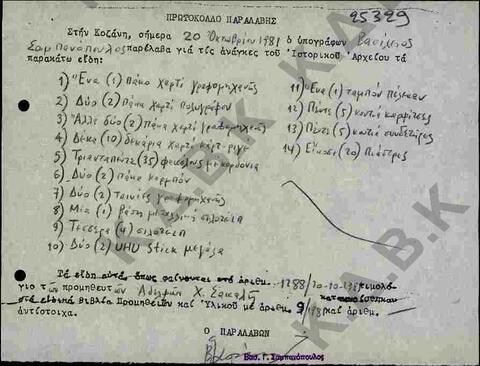 ΠΡΩΤΟΚΟΛΛΟ ΠΑΡΑΛΑΒΗΣ
25329
Στήν Κοζάνη, σήμερα 20 Ὀκτωβρίου 1981 ὁ ὑπογράφων Βασίλειος
Σαμπανόπουλος παρέλαβα γιά τίς ἀνάγκες τοῦ Ἱστορικοῦ Ἀρχείου τά
παρακάτω εἴδη:
1) Ἕνα (1) πάκο χαρτί γραφομηχανῆς
2) Δύο (2) πάκα χαρτί πολυγράφου
3) Ἄλλα δύο (2) πάκα χαρτί γραφομηχανῆς
4) Δέκα (10) δεκάρια χαρτί κάρτ-ριγέ
5) Τριανταπέντε (35) φακέλους μέ κορδόνια
6) Δύο (2) πάκα καρμπόν
7) Δύο (2) ταινίες γραφομηχανῆς
8) Μία (1) βάση μεταλλική σελοτέιπ
9) Τέσσερα (4) σελοτέιπ
10) Δύο (2) UHU Stick μεγάλα
11) Ἕνα (1) ταμπόν
12) Πέντε (5) κουτιά καρφίτσες
13) Πέντε (5) κουτιά συνδετῆρες
14) Εἴκοσι (20) πιάστρες
Τά εἴδη αὐτά, ὅπως φαίνονται στό ἀριθμ. 1288/20-10-1981 τιμολό-
γιο τῶν προμηθευτῶν Ἀδελφῶν Χ. Σακαλῆ καταχωρίστηκαν
στά εἰδικά βιβλία Προμηθειῶν καί Ὑλικοῦ μέ ἀριθμ. 9/1981 καί ἀριθμ.
ἀντίστοιχα.
Ο ΠΑΡΑΛΑΒΩΝ
Βασ. Γ. Σαμπανόπουλος
Κ.Α.Β.Κ
Κ.Α.Β.Κ